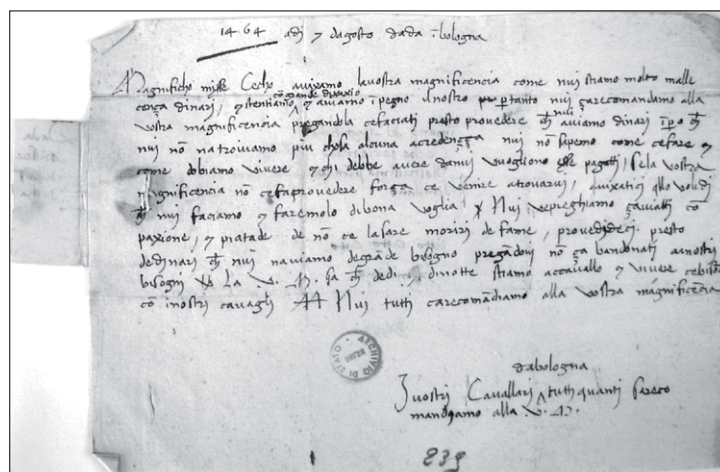 1464 adj 7 dagosto dada ĩ bologna
Magnificho miss Cecho avixamo la vostra magnificencia come nui stiamo molto malle
cõ grande dixaxio
cença dinari, & stentiamo & aviamo ĩ pegno il nostro p tanto nui ça recomandamo alla
vostra magnificencia pregandola ce faciati presto provedere che nui aviamo dinari ĩp o che
nui nõ na troviamo più chosa alcuna a credença nui nõ sapemo come ce fare &
come dobiamo vivere & chi debbe avere da nui vogliono esse pagati, se la vostra
magnificencia nõ ce fa provedere força ce venire a trovarvi, avixatici qllo volidi
che nui faciamo & faremolo di bona voglia Nui ve preghiamo çaviati cõ
paxione, & piatade de nõ ce lasare moriri de fame, provedideci presto
de dinari che nui naviamo de grãde bisogno pregãdovi nõ ça bandonati a inostri
bisogni La V. M. sa che de di, di notte stiamo accavallo & vivere cebisõ
cõ i nostri cavagli Nui tutti ca recomãdiamo alla vostra magnificencia
ARCHIVIO DI STATO MILANO
da bologna
I vostri Cavallari tuti quanti sareco
mandano alla V. M.
239